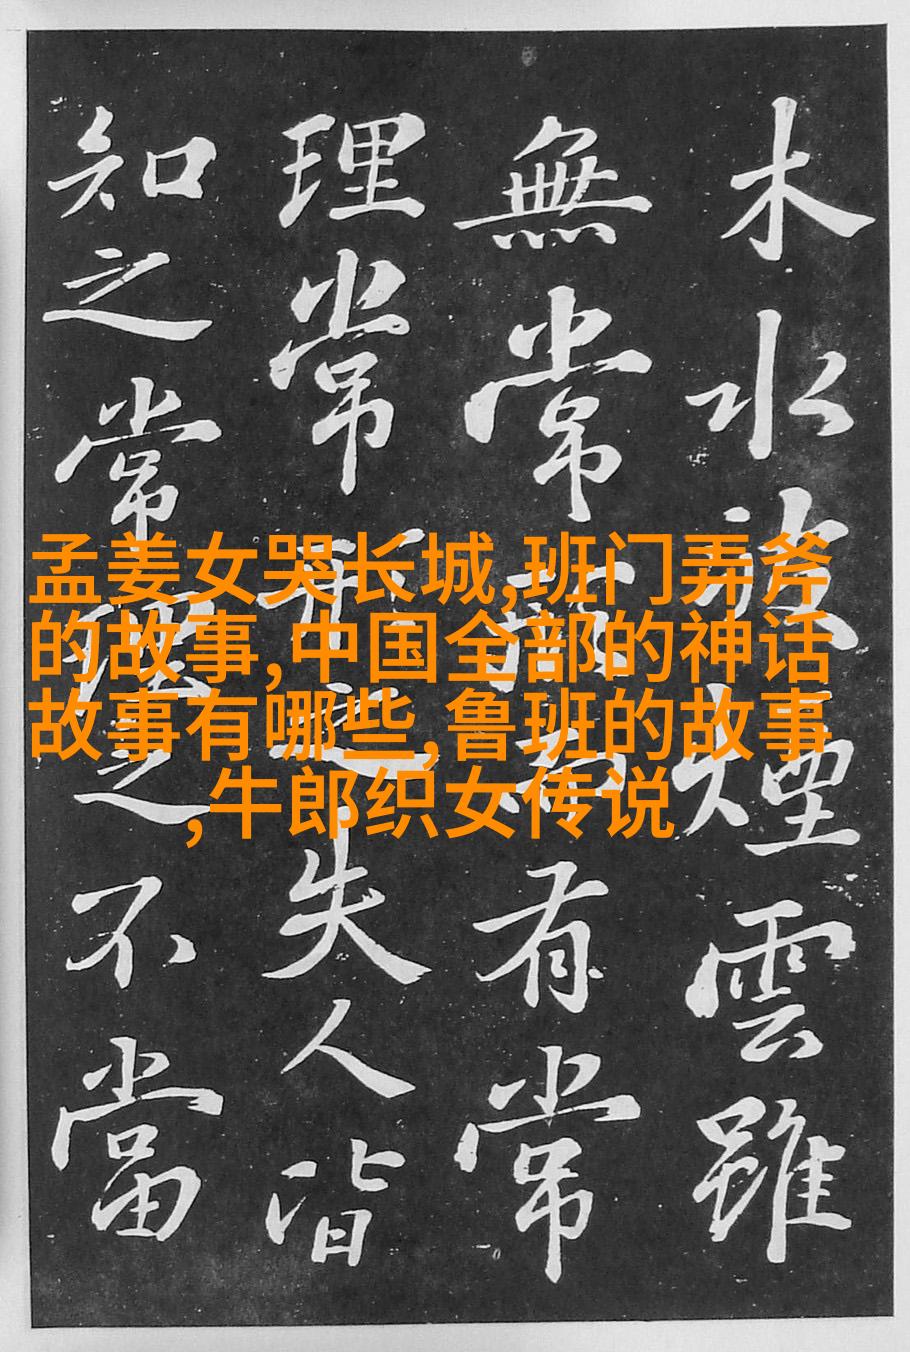 木水波煙雲雖
無常形而有常
理常形之失人皆
知之常理之不當
孟姜女哭长城,班门弄斧
的故事,中国全部的神话
故事有哪些,鲁班的故事
,牛郎织女传说